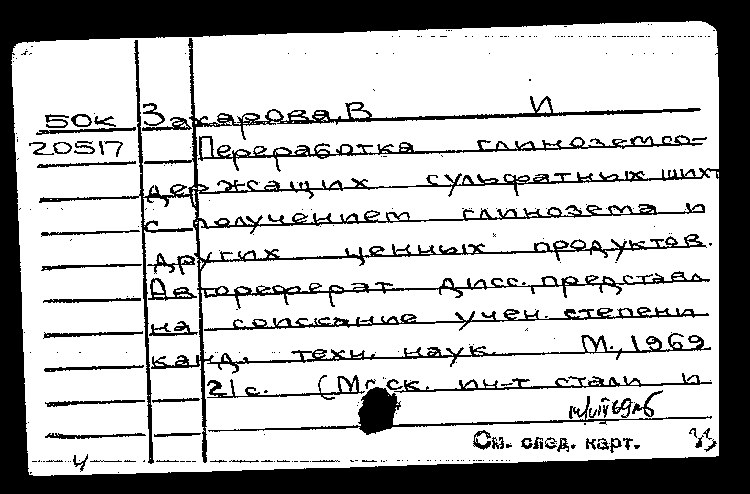 50к Захарова, В И
20517 Переработка глиноземсо=
держащих сульфатных шихт
с получением глинозема и
других ценных продуктов.
Автореферат дисс., представл
на соискание учен. степени
канд. техн. наук. М., 1969
21 с. (Моск. ин-т стали и
См. след. карт. 33
4